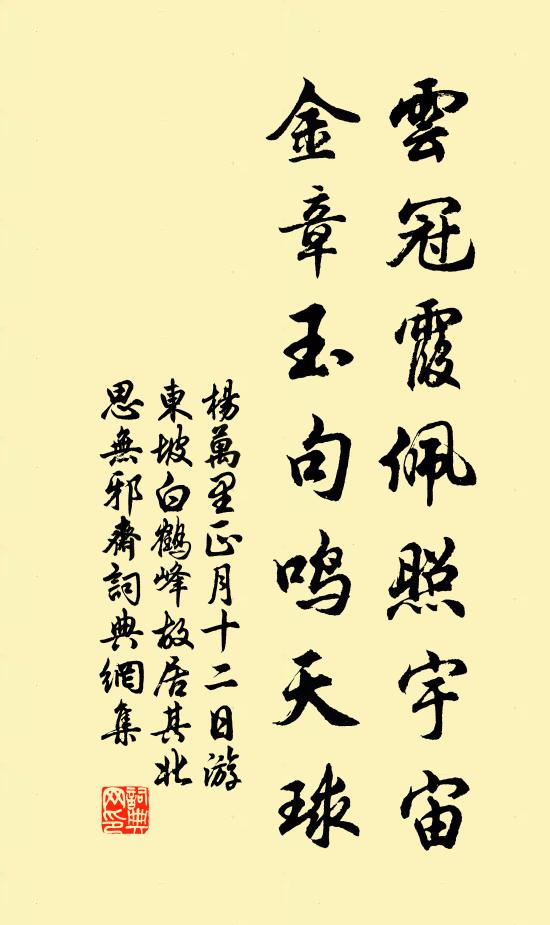 雲冠霞佩照宇宙
金章玉句鳴天球
楊萬里正月十二日游
東坡白鶴峰故居其北
思無邪齋詞典網集
詞典
网印